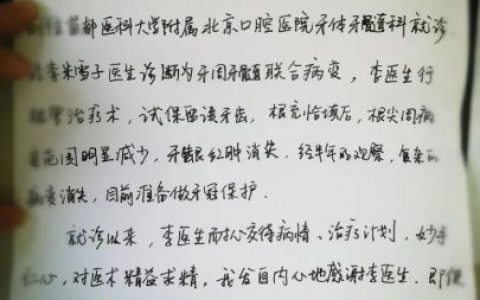 前往首都医科大学附属北京口腔医院牙体牙髓科就诊
经李朱雪子医生诊断为牙周牙髓联合病变，李医生行
治疗术，试保留该牙齿，根充恰填后，根尖周病
范围明显减少，牙龈红肿消失．经半年的观察，
病变消失，目前准备做牙冠保护．
就诊以来，李医生耐心交待病情、治疗计划，妙手
仁心，对医术精益求精，我发自内心地感谢李医生．即便